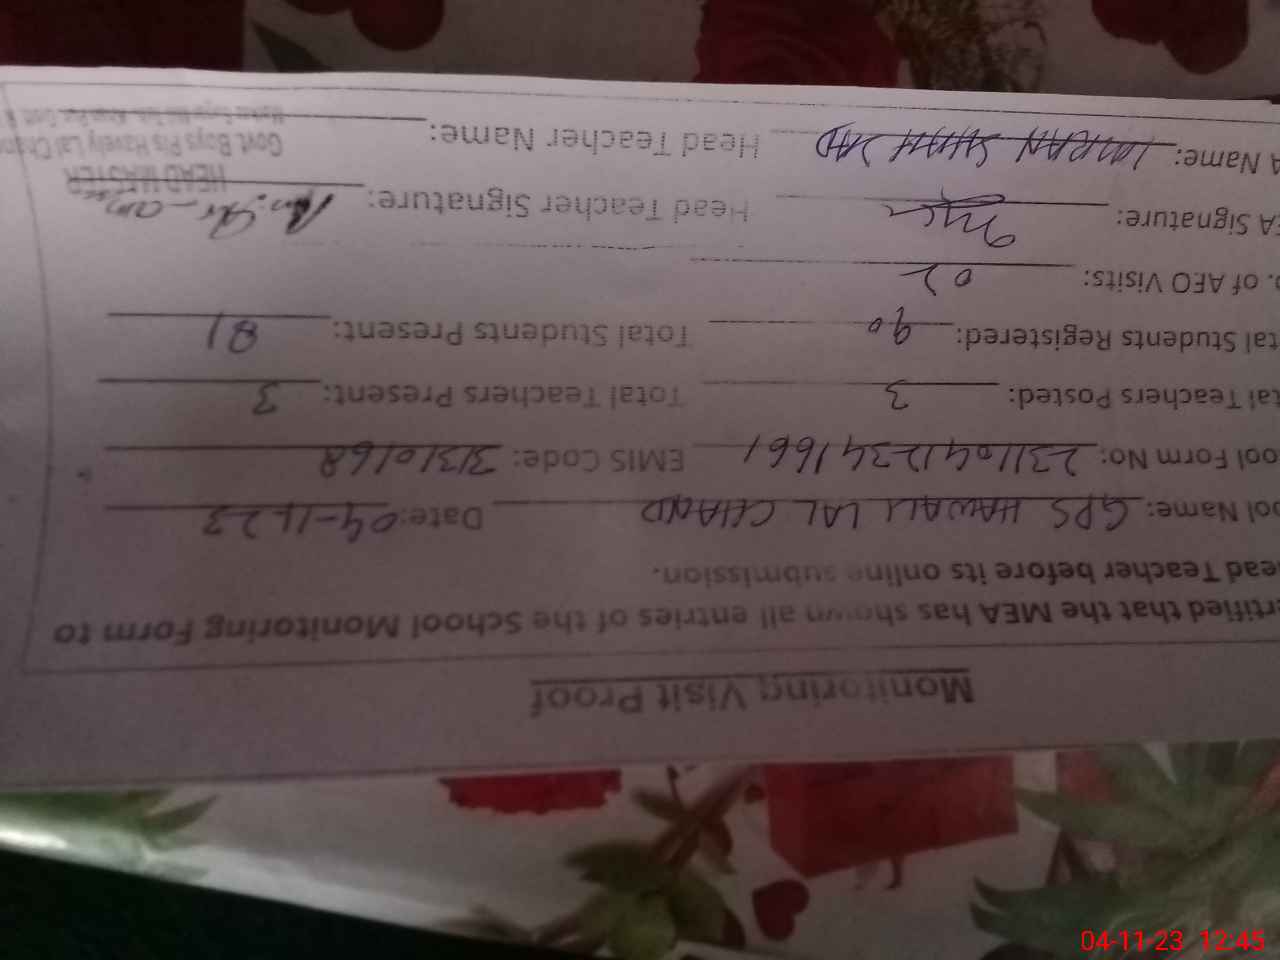 Monitoring Visit Proof
rtified that the MEA has shown all entries of the School Monitoring Form to
ead Teacher before its online submission.
ool Name: GPS HAWALI LAL CHAND Date: 04-11-23
ool Form No: 23110412341661 EMIS Code: 31310168
tal Teachers Posted: 3 Total Teachers Present: 3
tal Students Registered: 90 Total Students Present: 81
. of AEO Visits: 02
EA Signature: Head Teacher Signature:
HEAD MASTER
A Name: IMRAN SHAHZAD Head Teacher Name:
Govt. Boys P/s Havely Lal Chand
04-11-23 12:45